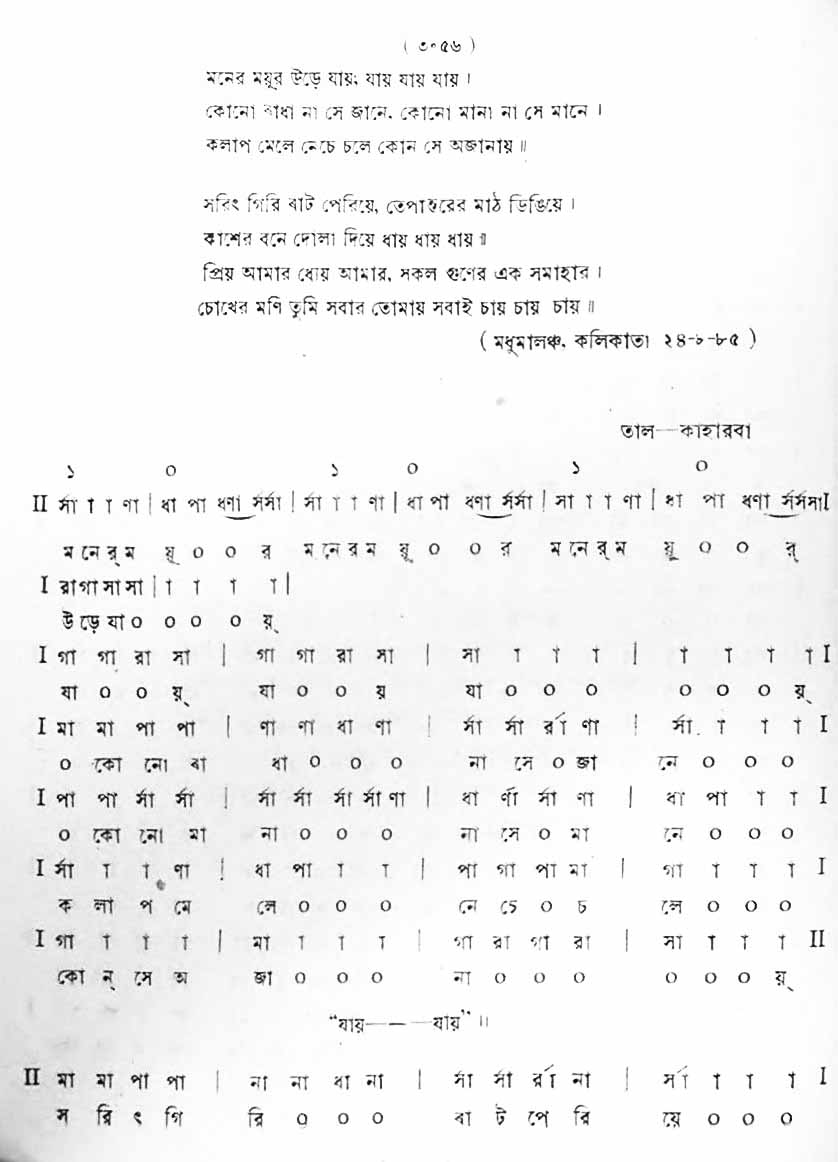 ( ৩০৫৬ )
মনের ময়ূর উড়ে যায়; যায় যায় যায় ।
কোনো বাধা না সে জানে, কোনো মানা না সে মানে ।
কলাপ মেলে নেচে চলে কোন সে অজানায় ॥
সরিৎ গিরি বাট পেরিয়ে, তেপান্তরের মাঠ ডিঙিয়ে ।
কাশের বনে দোলা দিয়ে ধায় ধায় ধায় ॥
প্রিয় আমার ধ্যেয় আমার, সকল গুণের এক সমাহার ।
চোখের মণি তুমি সবার তোমায় সবাই চায় চায় চায় ॥
( মধুমালঞ্চ, কলিকাতা ২৪-৮-৮৫ )
তাল—কাহারবা
১ ০ ১ ০ ১ ০
II র্সা া া ণা | ধা পা ধণা র্সর্সা | র্সা া া ণা | ধা পা ধণা র্সর্সা | র্সা া া ণা | ধা পা ধণা র্সর্সসা I
ম নে র্ ম য়ূ ০ ০ র ম নে র ম য়ূ ০ ০ র ম নে র্ ম য়ূ ০ ০ র্
I রা গা সা সা | া া া া |
উ ড়ে যা ০ ০ ০ ০ য়্
I গা গা রা সা | গা গা রা সা | সা া া া | া া া া I
যা ০ ০ য়্ যা ০ ০ য় যা ০ ০ ০ ০ ০ ০ য়্
I মা মা পা পা | ণা ণা ধা ণা | র্সা র্সা র্রা ণা | র্সা া া া I
০ কো নো বা ধা ০ ০ ০ না সে ০ জা নে ০ ০ ০
I পা পা র্সা র্সা | র্সা র্সা র্সা র্সা ণা | ধা র্ণা র্সা ণা | ধা পা া া I
০ কোনো মা না ০ ০ ০ না সে ০ মা নে ০ ০ ০
I র্সা া া ণা | ধা পা া া | পা গা পা মা | গা া া া I
ক লা প মে লে ০ ০ ০ নে চে ০ চ লে ০ ০ ০
I গা া া া | মা া া া | গা রা গা রা | সা া া া II
কো ন্ সে অ জা ০ ০ ০ না ০ ০ ০ ০ ০ ০ য়্
“যায়———যায়” ॥
II মা মা পা পা | না না ধা না | র্সা র্সা র্রা না | র্সা া া া I
স রি ৎ গি রি ০ ০ ০ বা ট পে রি য়ে ০ ০ ০